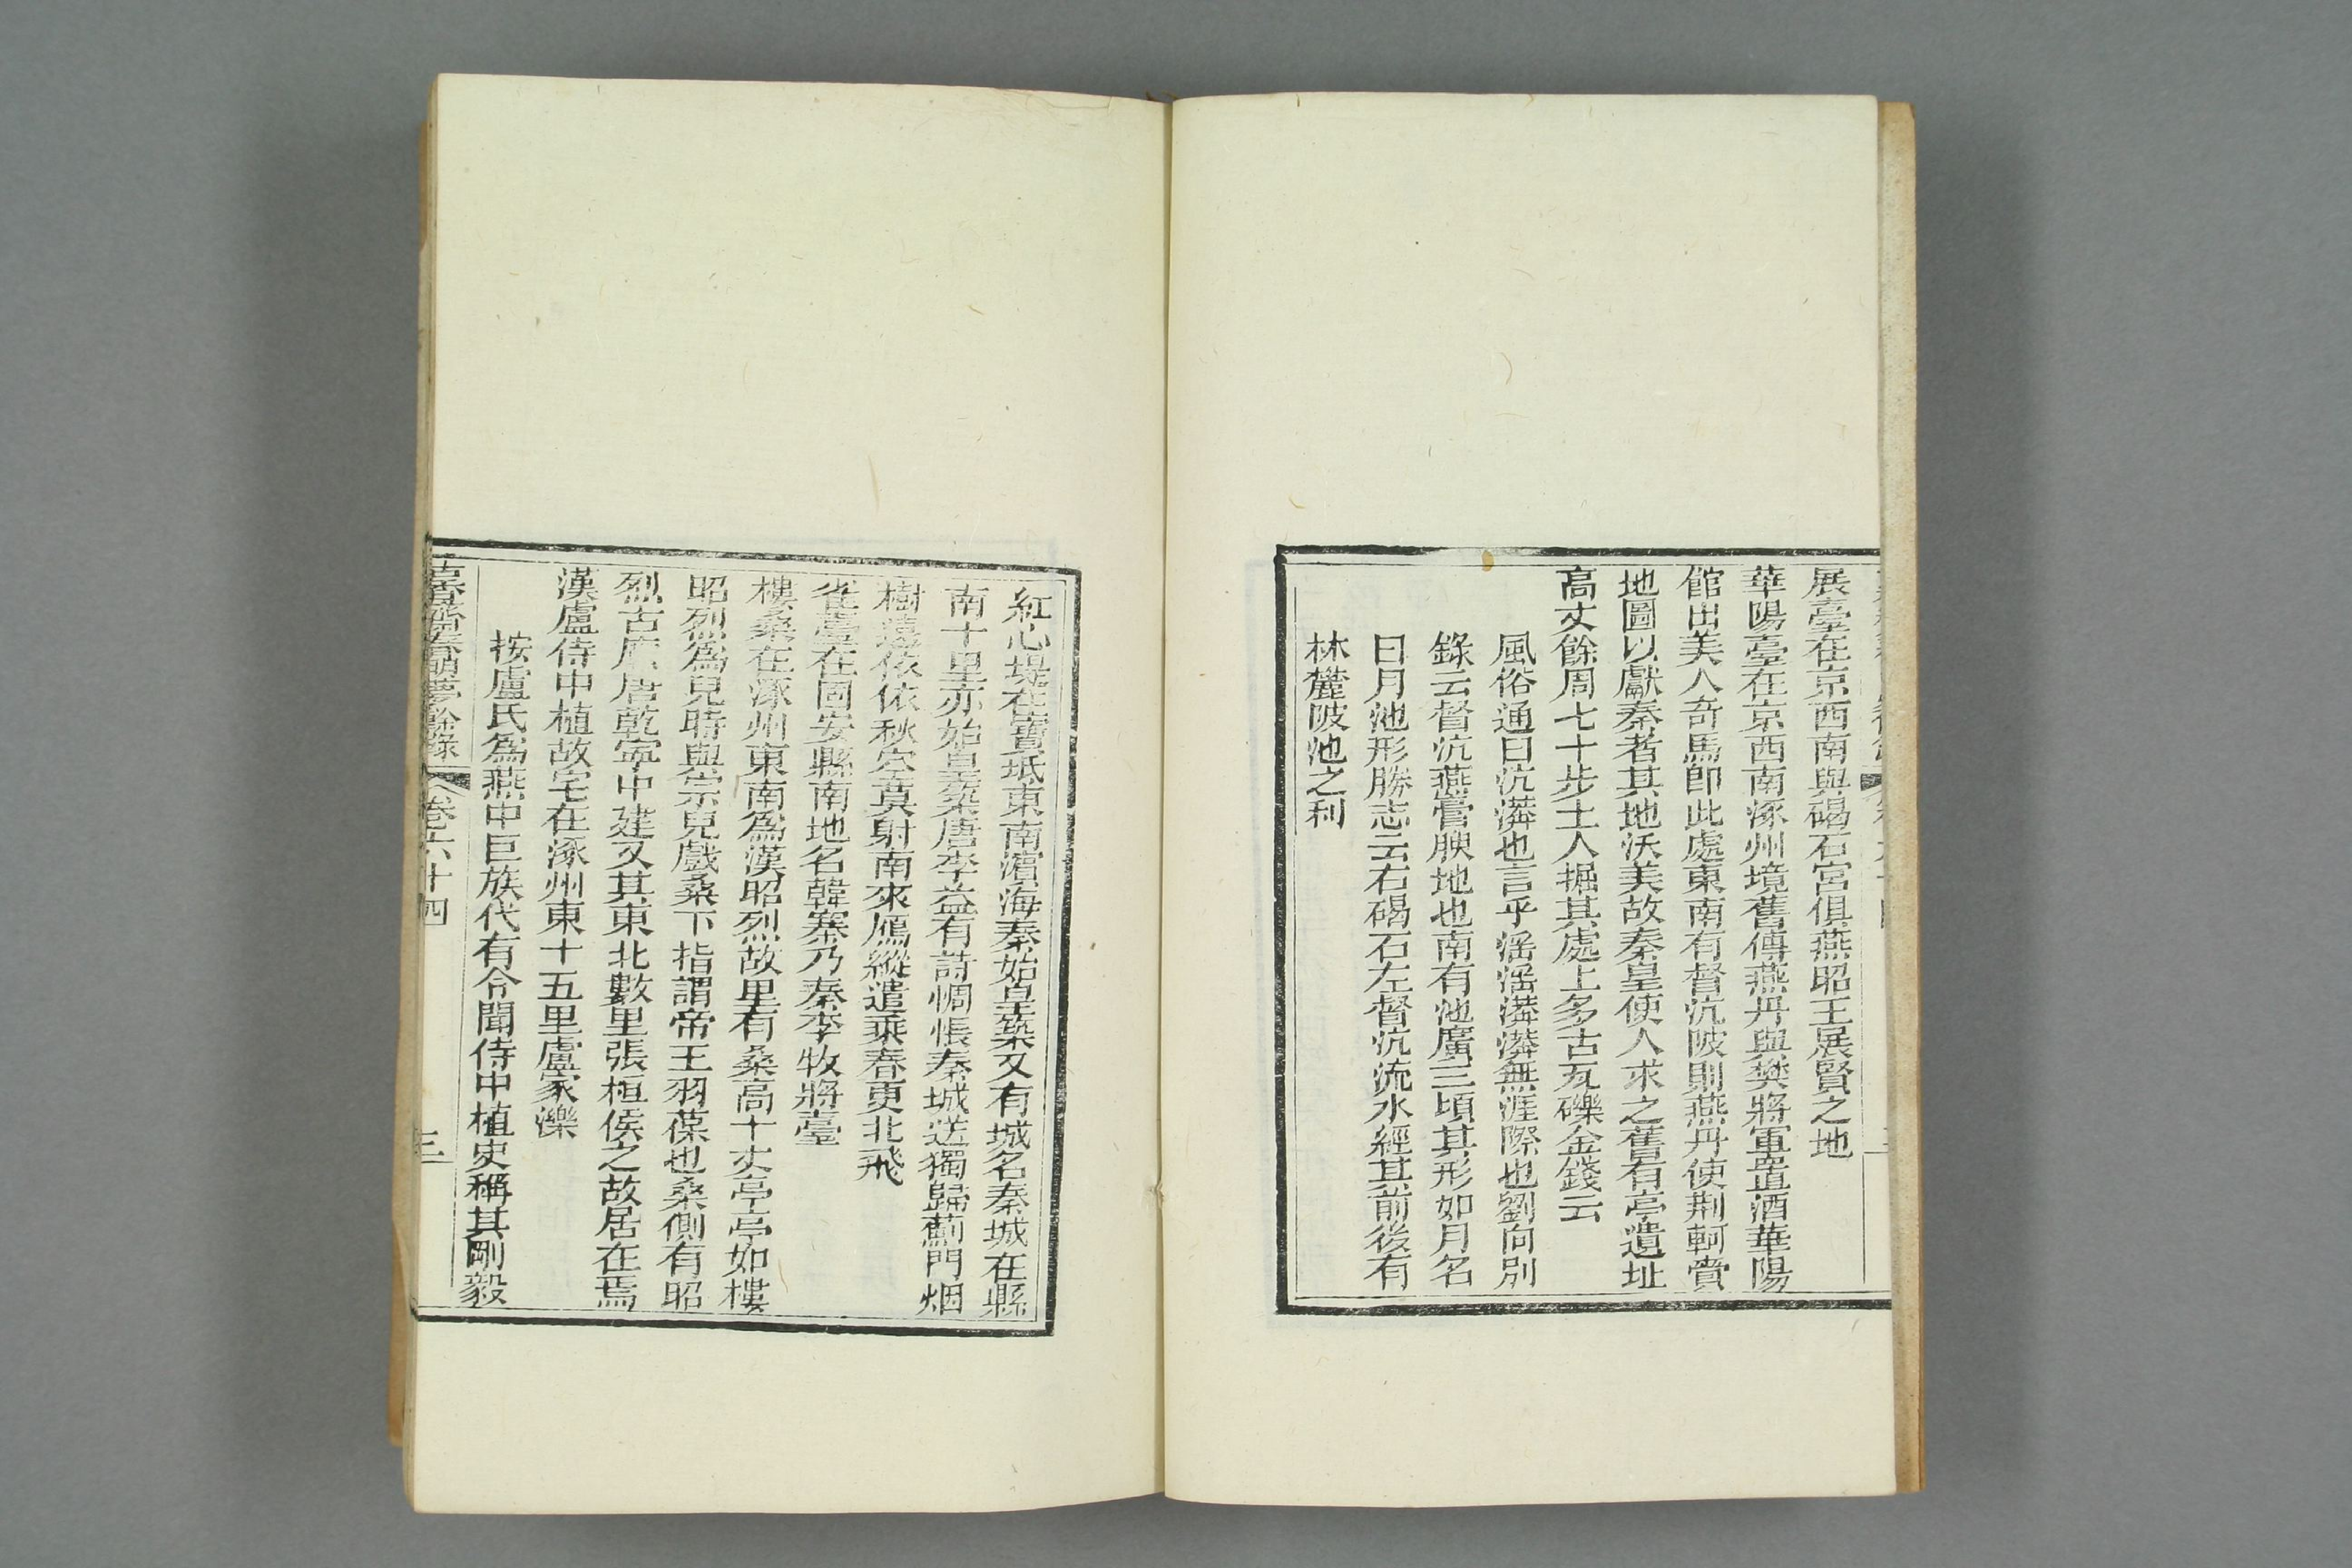 展臺在京西南與碣石宮俱燕昭王展賢之地
華陽臺在京西南涿州境舊傳燕丹與樊將軍置酒華陽
館出美人奇馬卽此處東南有督沆陂則燕丹使荆軻賫
地圖以獻秦者其地沃美故秦皇使人求之舊有亭遺址
高丈餘周七十步土人掘其處上多古瓦礫金錢云
風俗通曰沆漭也言乎淫淫漭漭無涯際也劉向別
錄云督沆燕膏腴地也南有池廣三頃其形如月名
日月池形勝志云右碣石左督沆流水經其前後有
林麓陂池之利
紅心堤在寶坻東南濵海秦始皇築又有城名秦城在縣
南十里亦始皇築唐李益有詩惆悵秦城送獨歸薊門烟
樹遠依依秋空莫射南來鴈縱遣乘春更北飛
雀臺在固安縣南地名韓寨乃秦李牧將臺
樓桑在涿州東南爲漢昭烈故里有桑高十丈亭亭如樓
昭烈爲兒時與宗兒戲桑下指謂帝王羽葆也桑側有昭
烈古廟唐乾寧中建又其東北數里張桓侯之故居在焉
漢盧侍中植故宅在涿州東十五里盧家濼
按盧氏爲燕中巨族代有令聞侍中植史稱其剛毅
古香齋春明夢餘錄 卷六十四 三